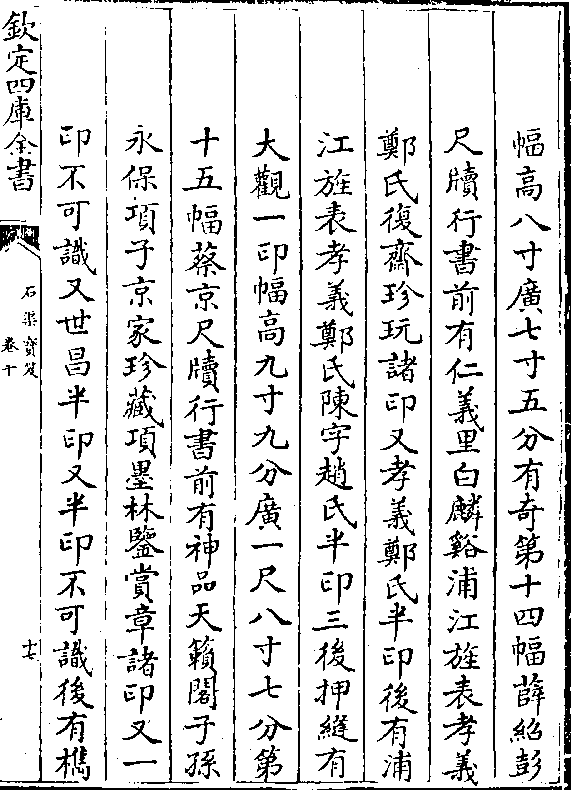 幅高八寸廣七寸五分有奇第十四幅薛紹彭
尺牘行書前有仁義里白麟谿浦江旌表孝義
鄭氏復齋珍玩諸印又孝義鄭氏半印後有浦
江旌表孝義鄭氏陳字趙氏半印三後押縫有
大觀一印幅高九寸九分廣一尺八寸七分第
十五幅蔡京尺牘行書前有神品天籟閣子孫
永保項子京家珍藏項墨林鑒賞章諸印又一
印不可識又世昌半印又半印不可識後有檇
欽定四庫全書
石渠寳笈
卷十
十七